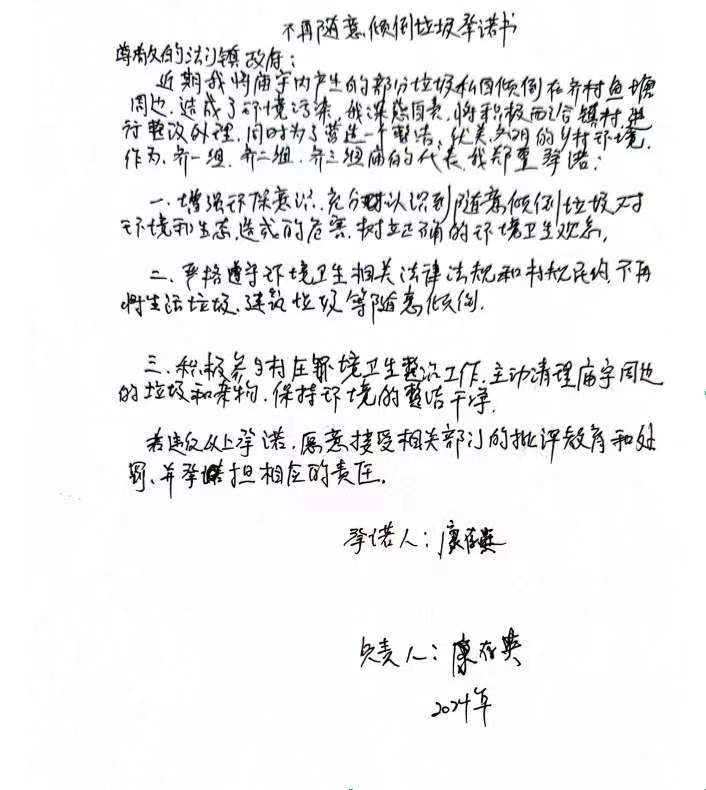 不再随意倾倒垃圾承诺书
尊敬的法门镇政府：
近期我将庙宇内产生的部分垃圾私自倾倒在齐村鱼塘
周边，造成了环境污染，我深感自责，将积极配合镇村进
行整改处理，同时为了营造一个整洁、优美、文明的乡村环境，
作为齐一组、齐二组、齐三组庙的代表，我郑重承诺：
一、增强环保意识，充分认识到随意倾倒垃圾对
环境和生态造成的危害，树立正确的环境卫生观念。
二、严格遵守环境卫生相关法律法规和村规民约，不再
将生活垃圾、建筑垃圾等随意倾倒。
三、积极参与村庄环境卫生整治工作，主动清理庙宇周边
的垃圾和杂物，保持环境的整洁干净。
若违反以上承诺，愿意接受相关部门的批评教育和处
罚，并承担相应的责任。
承诺人：康存
负责人：康存
2024年